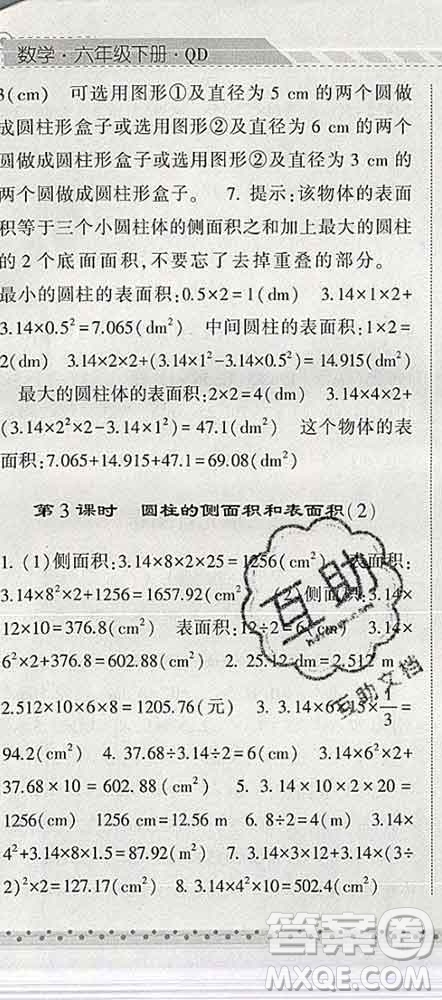 数学·六年级下册·QD
3(cm) 可选用图形①及直径为 5 cm 的两个圆做
成圆柱形盒子或选用图形②及直径为 6 cm 的两个
圆做成圆柱形盒子或选用图形②及直径为 3 cm 的
两个圆做成圆柱形盒子。 7. 提示:该物体的表面
积等于三个小圆柱体的侧面积之和加上最大的圆柱
的 2 个底面面积,不要忘了去掉重叠的部分。
最小的圆柱的表面积:0.5×2=1(dm) 3.14×1×2+
3.14×0.5²=7.065(dm²) 中间圆柱的表面积:1×2=
2(dm) 3.14×2×2+(3.14×1²-3.14×0.5²)=14.915(dm²)
最大的圆柱体的表面积:2×2=4(dm) 3.14×4×2+
(3.14×2²×2-3.14×1²)=47.1(dm²) 这个物体的表
面积:7.065+14.915+47.1=69.08(dm²)
第 3 课时 圆柱的侧面积和表面积(2)
1. (1)侧面积:3.14×8×2×25=1256(cm²) 表面积:
3.14×8²×2+1256=1657.92(cm²) (2)侧面积:3.14×
12×10=376.8(cm²) 表面积:12÷2=6(cm) 3.14×
6²×2+376.8=602.88(cm²) 2. 25.12 dm=2.512 m
2.512×10×6×8=1205.76(元) 3. 3.14×6×15×1/3=
94.2(cm²) 4. 37.68÷3.14÷2=6(cm) 3.14×6²×2+
37.68×10=602.88(cm²) 5. 3.14×10×2×20=
1256(cm) 1256 cm=12.56 m 6. 8÷2=4(m) 3.14×
4²+3.14×8×1.5=87.92(m²) 7. 3.14×3×12+3.14×(3÷
2)²×2=127.17(cm²) 8. 3.14×4²×10=502.4(cm²)
互助
互助文档
答案圈
MXQE.COM